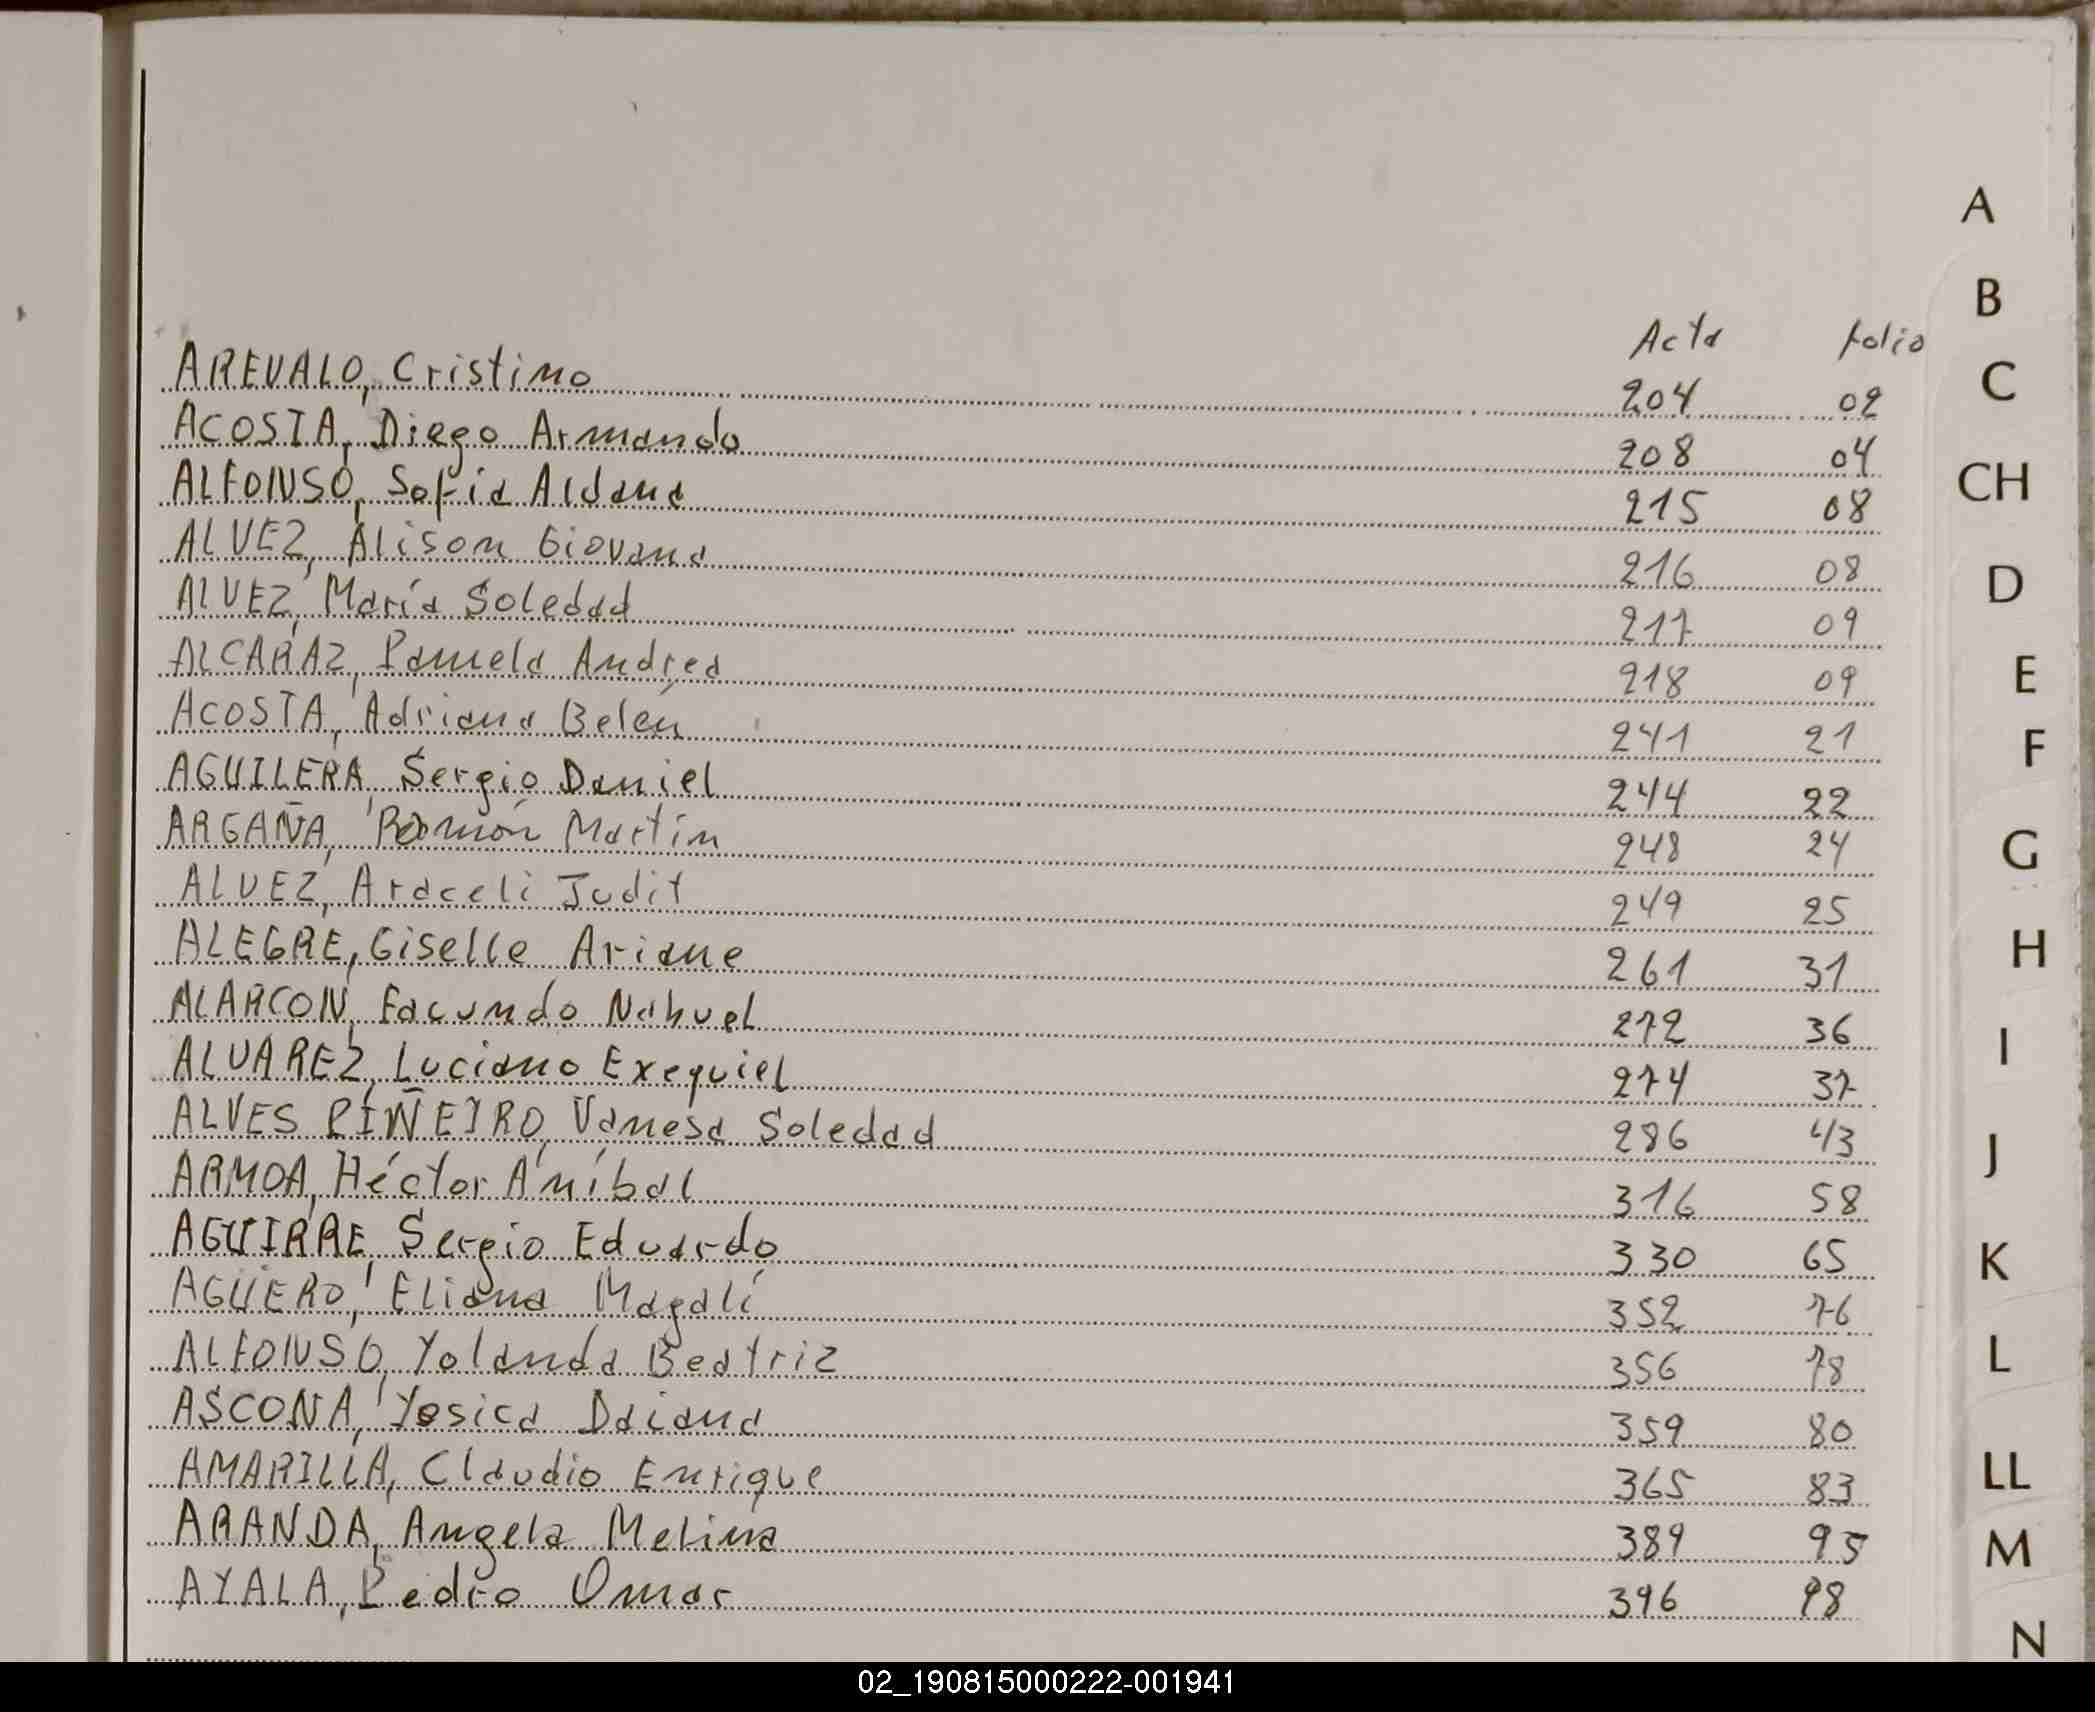 Acta folio
AREVALO, Cristino 204 02
ACOSTA, Diego Armando 208 04
ALFONSO, Sofia Aldana 215 08
ALVEZ, Alison Giovana 216 08
ALVEZ, María Soledad 217 09
ALCARAZ, Pamela Andrea 218 09
ACOSTA, Adriana Belén 241 21
AGUILERA, Sergio Daniel 244 22
ARGAÑA, Ramón Martín 248 24
ALVEZ, Araceli Judit 249 25
ALEGRE, Giselle Ariane 261 31
ALARCON, Facundo Nahuel 272 36
ALVAREZ, Luciano Exequiel 274 37
ALVES PIÑEIRO, Vanesa Soledad 286 43
ARMOA, Héctor Aníbal 316 58
AGUIRRE, Sergio Eduardo 330 65
AGÜERO, Eliana Magalí 352 76
ALFONSO, Yolanda Beatriz 356 78
ASCONA, Yesica Daiana 359 80
AMARILLA, Claudio Enrique 365 83
ARANDA, Angela Melina 389 95
AYALA, Pedro Omar 396 98
A
B
C
CH
D
E
F
G
H
I
J
K
L
LL
M
N
02_190815000222-001941